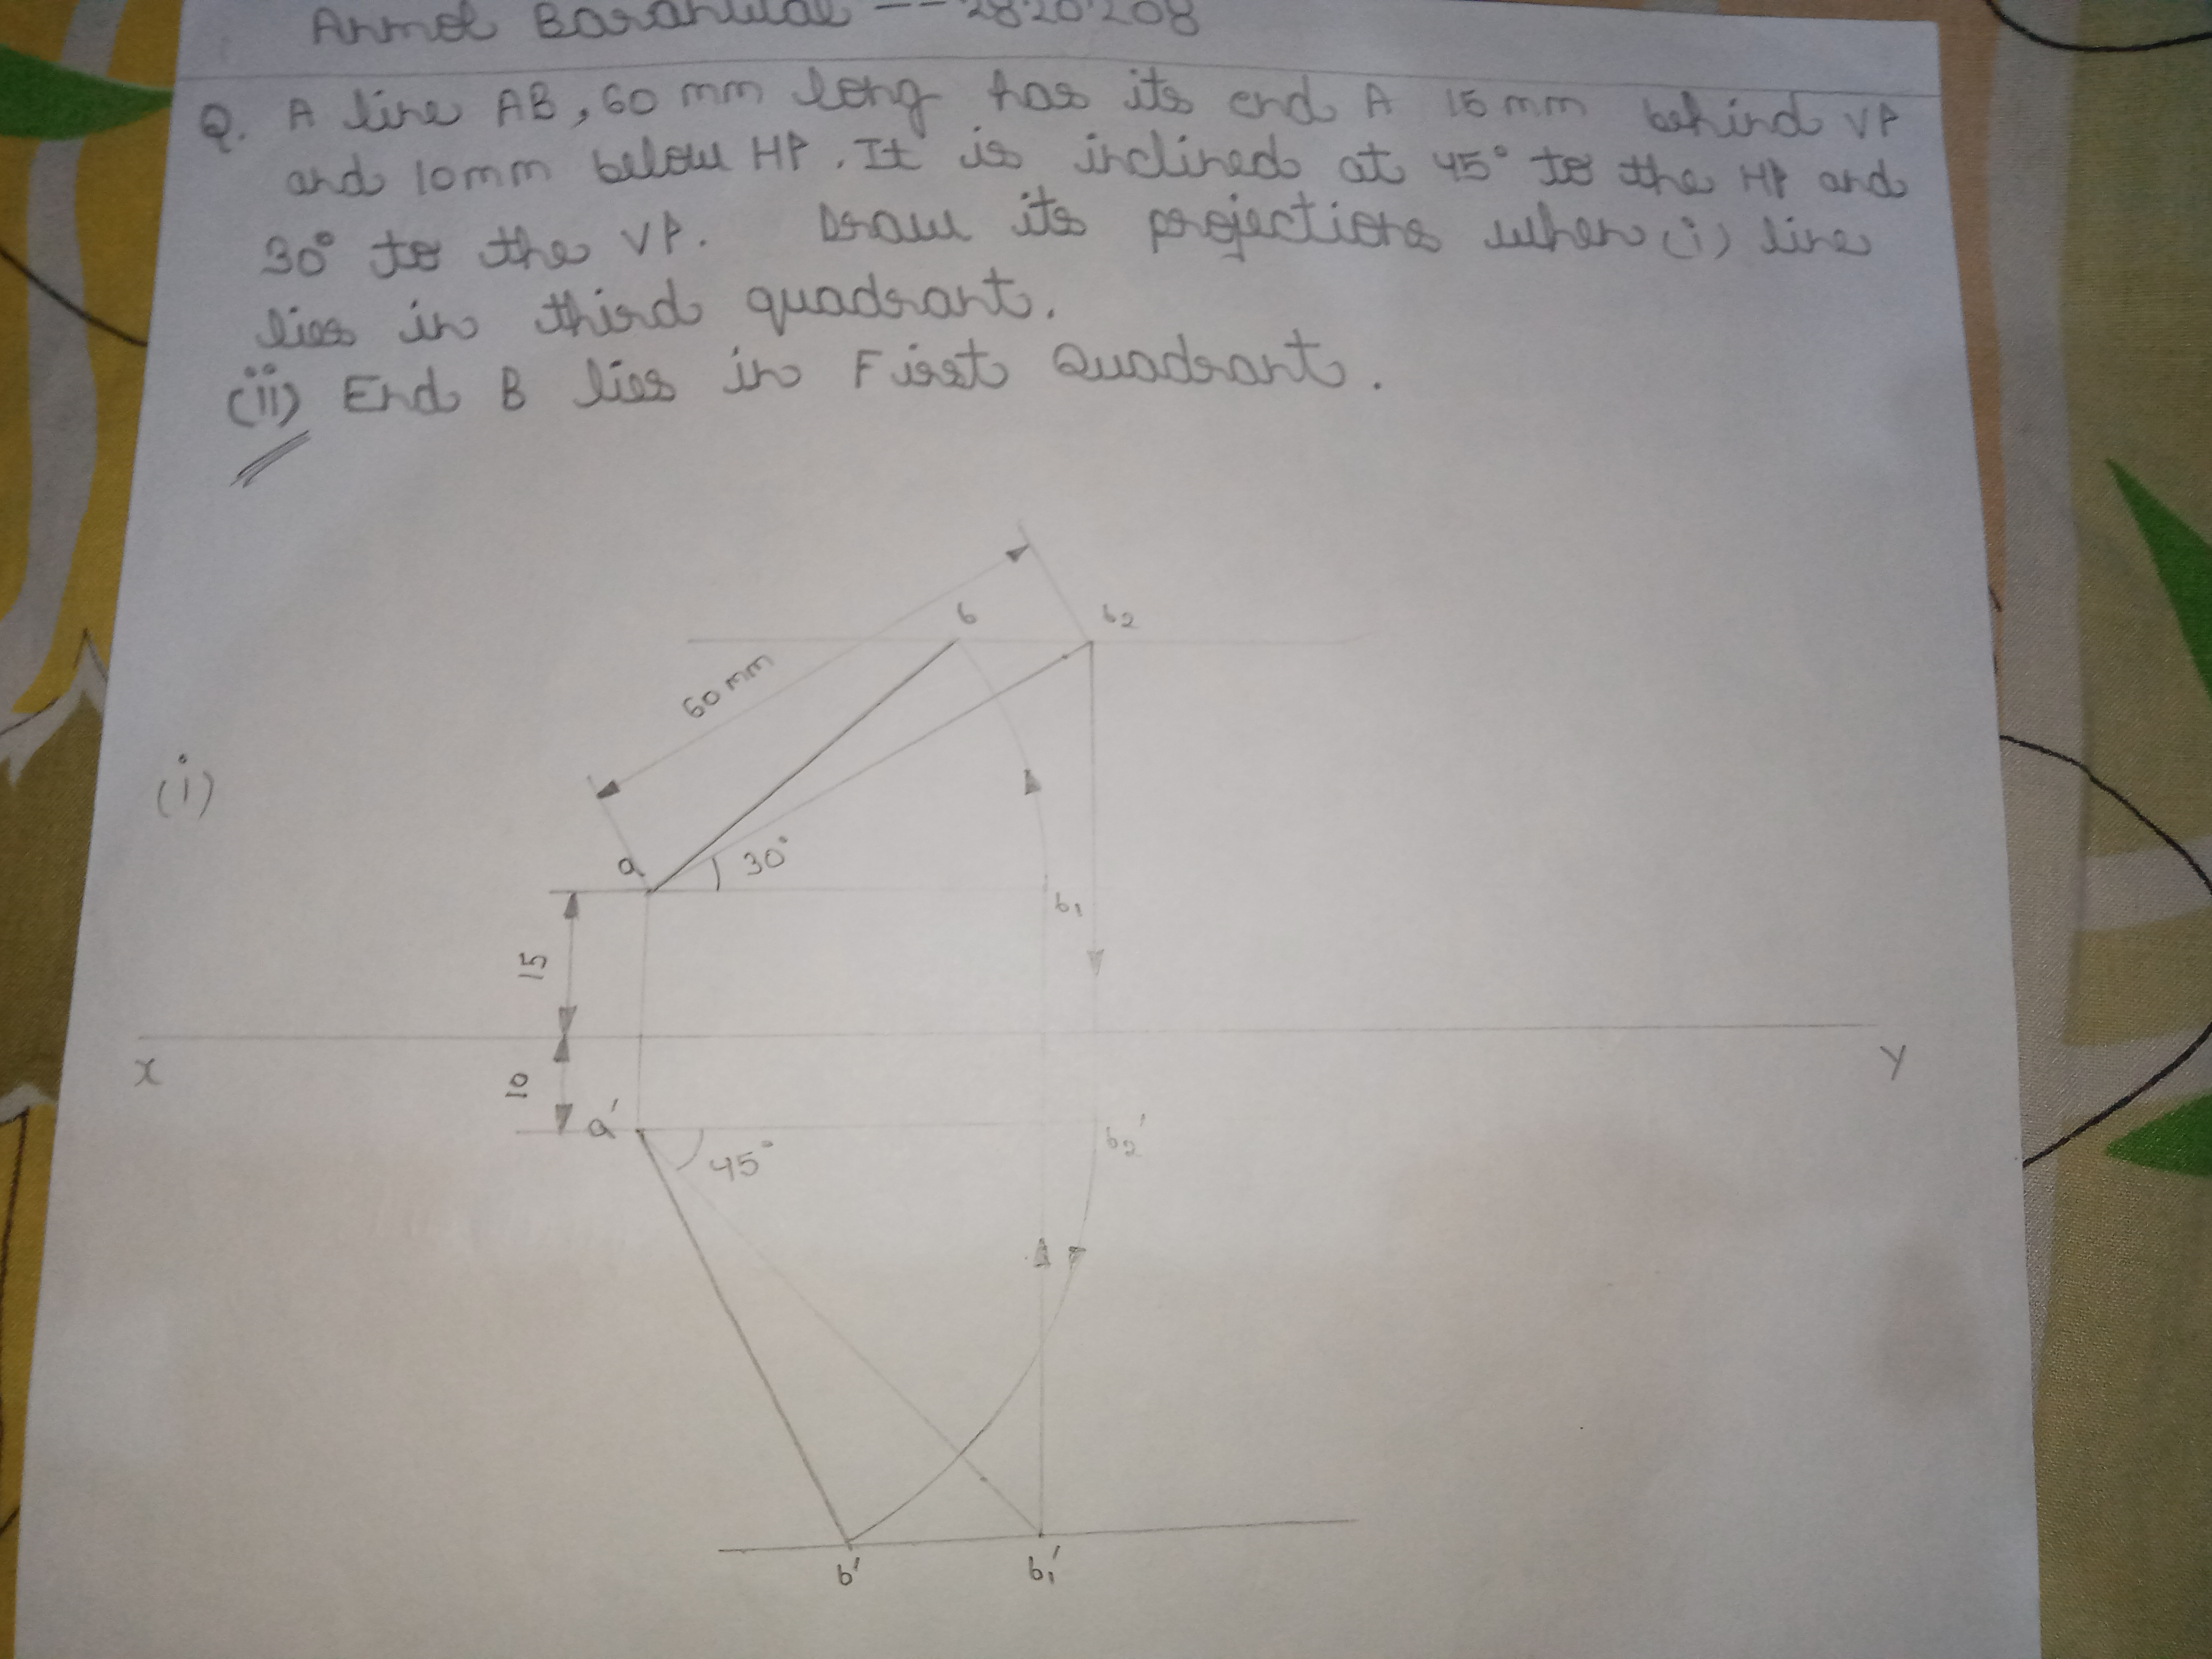 Q. A line AB, 60 mm long has its end A 15 mm behind VP
and 10mm below HP. It is inclined at 45° to the HP and
30° to the VP. Draw its projections when (i) line
lies in third quadrant.
(ii) End B lies in First Quadrant.
b b2
60 mm
(i)
a 30°
b1
15
x y
10
a' b2'
45°
b' b1'